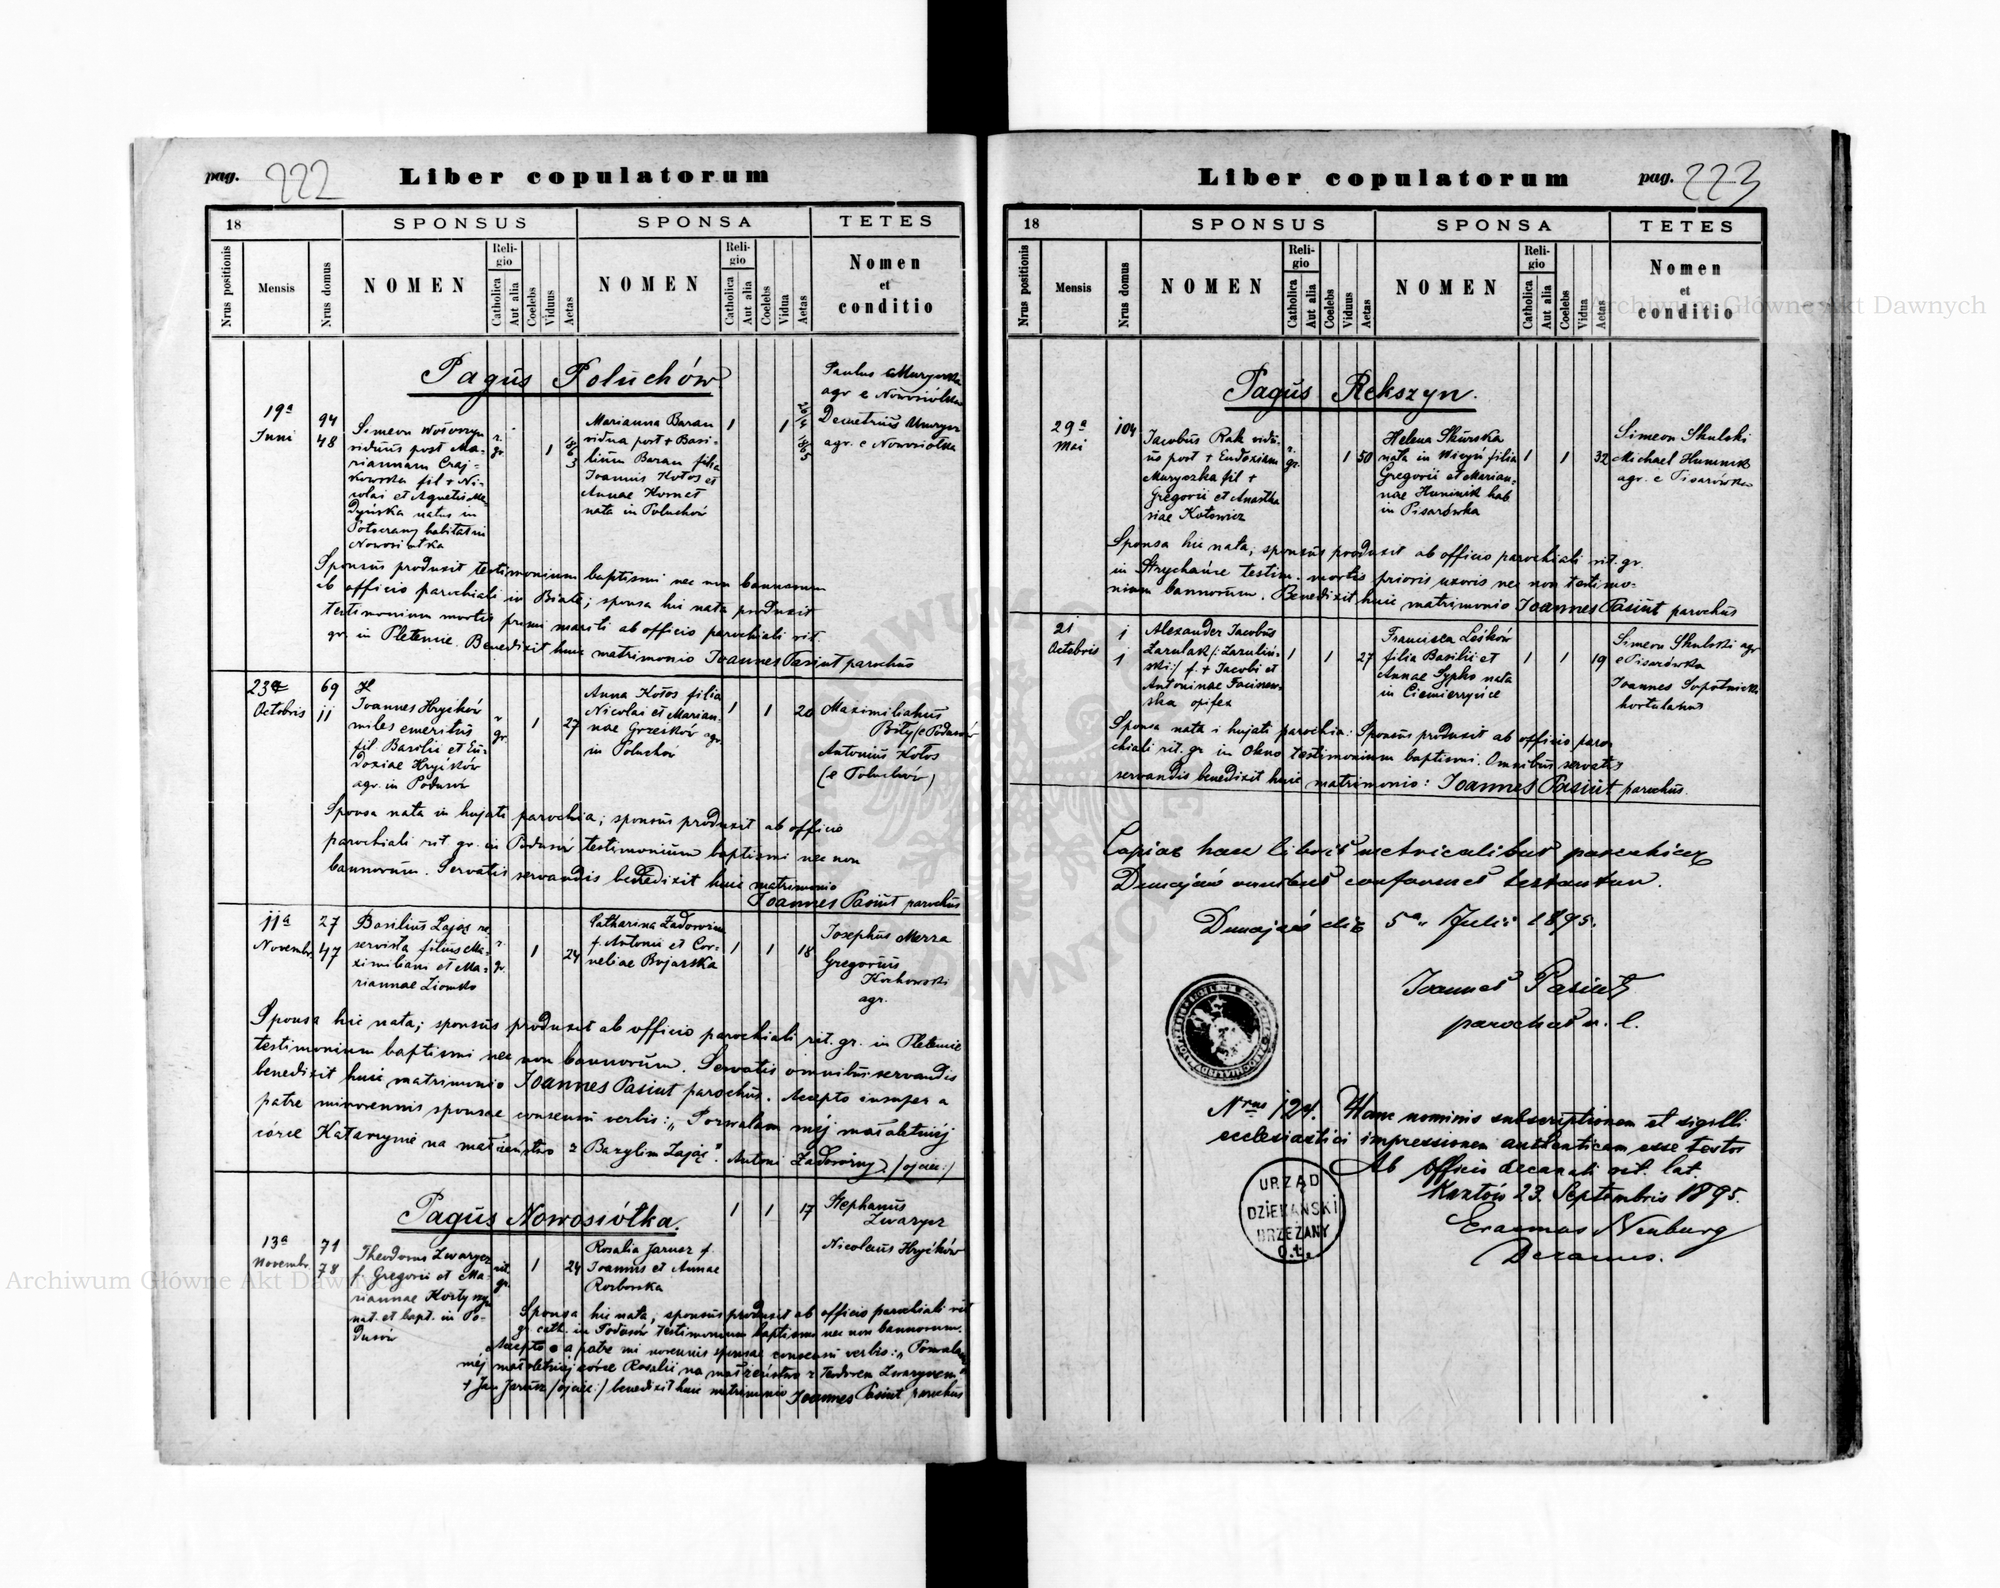 pag. 222 Liber copulatorum
18 SPONSUS SPONSA TETES
Nrus positionis Mensis Nrus domus NOMEN Religio Catholica Aut alia Coelebs Viduus Aetas NOMEN Religio Catholica Aut alia Coelebs Vidua Aetas Nomen et conditio
Pagus Poluchów
19a Juni
94
48
Simeon
viduus post Ma-
riannam Craj-
kowska fil + Ni-
colai et Agnetis
natus in
habitat in
Nowosiółka
r.
gr.
1
Marianna Baran
vidua post + Basi-
lium Baran filia
Joannis Kołos et
Annae Kornet
nata in Poluchów
1 1
Paulus
agr e Nowosiółka
Demetrius
agr. e Nowosiółka
Sponsus produxit testimonium baptismi nec non bannorum
ab officio parochiali in Białe; sponsa hic nata produxit
testimonium mortis primi mariti ab officio parochiali rit.
gr. in Pletenice. Benedixit huic matrimonio Joannes Pasiut parochus
23a Octobris
69
11
Joannes Hryćków
miles emeritus
fil. Basilii et Eu-
doxiae Hryćków
agr. in Podusów
r.
gr.
1 27
Anna Kołos filia
Nicolai et Marian-
nae Grześków agr.
in Poluchów
1 1 20
Maximilianus
Biły (e Podusów
Antonius Kołos
(e Poluchów)
Sponsa nata in hujate parochia; sponsus produxit ab officio
parochiali rit. gr. in Podusów testimonium baptismi nec non
bannorum. Servatis servandis benedixit huic matrimonio
Joannes Pasiut parochus
11a Novembr.
27
47
Basilius Zając re-
servista filius Ma-
ximiliani et Ma-
riannae Ziomko
r.
gr.
1 24
Catharina Zadorożna
f. Antonii et Cor-
neliae Bojarska
1 1 18
Josephus Merra
Gregorius
Kochowski
agr.
Sponsa hic nata; sponsus produxit ab officio parochiali rit. gr. in Pletenice
testimonium baptismi nec non bannorum. Servatis omnibus servandis
benedixit huic matrimonio Joannes Pasiut parochus. Accepto insuper a
patre minorennis sponsae consensu verbis: „Pozwalam mej małoletniej
córce Katarynie na małżeństwo z Bazylim Zając". Antoni Zadorożny /ojciec/
Pagus Nowosiółka.
13a Novembr.
71
78
Theodorus Zwarycz
f. Gregorii et Ma-
riannae
nat. et bapt. in Po-
dusów
rit.
gr.
1 24
Rosalia Jarusz f.
Joannis et Annae
Rozborska
1 1 17
Stephanus
Zwarycz
Nicolaus Hryćków
Sponsa hic nata; sponsus produxit ab officio parochiali rit
gr. cath. in Podusów testimonium baptismi nec non bannorum.
Accepto a patre minorennis sponsae consensu verbis: „Pozwalam
mej małoletniej córce Rosalii na małżeństwo z Teodorem Zwaryczem"
+ Jan Jarusz /ojciec/ benedixit huic matrimonio Joannes Pasiut parochus
Liber copulatorum pag. 223
18 SPONSUS SPONSA TETES
Nrus positionis Mensis Nrus domus NOMEN Religio Catholica Aut alia Coelebs Viduus Aetas NOMEN Religio Catholica Aut alia Coelebs Vidua Aetas Nomen et conditio
Pagus Rekszyn.
29a Mai
104
Jacobus Rak vidu-
us post + Eudoxiam
Muryczka fil +
Gregorii et Anastha
siae Kotowicz
r.
gr.
1 50
Helena Skurska
nata in filia
Gregorii et Marian-
nae Huminik hab
in Pisarówka
1 1 32
Simeon Skulski
Michael Huminik
agr. e Pisarówka
Sponsa hic nata; sponsus produxit ab officio parochiali rit. gr.
in Strychańce testim. mortis prioris uxoris nec non testimo-
nium bannorum. Benedixit huic matrimonio Joannes Pasiut parochus
21 Octobris
1
1
Alexander Jacobus
Zarulak /:Zaruliń-
ski:/ f. + Jacobi et
Antoninae
opifex
1 1 27
Francisca Leśków
filia Basilii et
Annae Sypko nata
in Ciemierzyńce
1 1 19
Simeon Skulski agr
e Pisarówka
Joannes Sopotnicki
hortulanus
Sponsa nata i hujati parochia: Sponsus produxit ab officio paro-
chiali rit. gr. in Okno testimonium baptismi. Omnibus servatis
servandis benedixit huic matrimonio: Joannes Pasiut parochus.
Copias hasce libris metricalibus parochiae
Dunajów omnibus conformes testantur.
Dunajów die 5a Julii 1895.
Joannes Pasiut
parochus r. l.
Nrus 124. Hanc nominis subscriptionem et sigilli
ecclesiastici impressionem authenticam esse testor
Ab officio decanali rit. lat
23. Septembris 1895.
Erasmus Neuburg
Decanus.
URZĄD
DZIEKAŃSKI
BRZEŻANY
O.Ł.
Archiwum Główne Akt Dawnych
Archiwum Główne Akt Dawnych